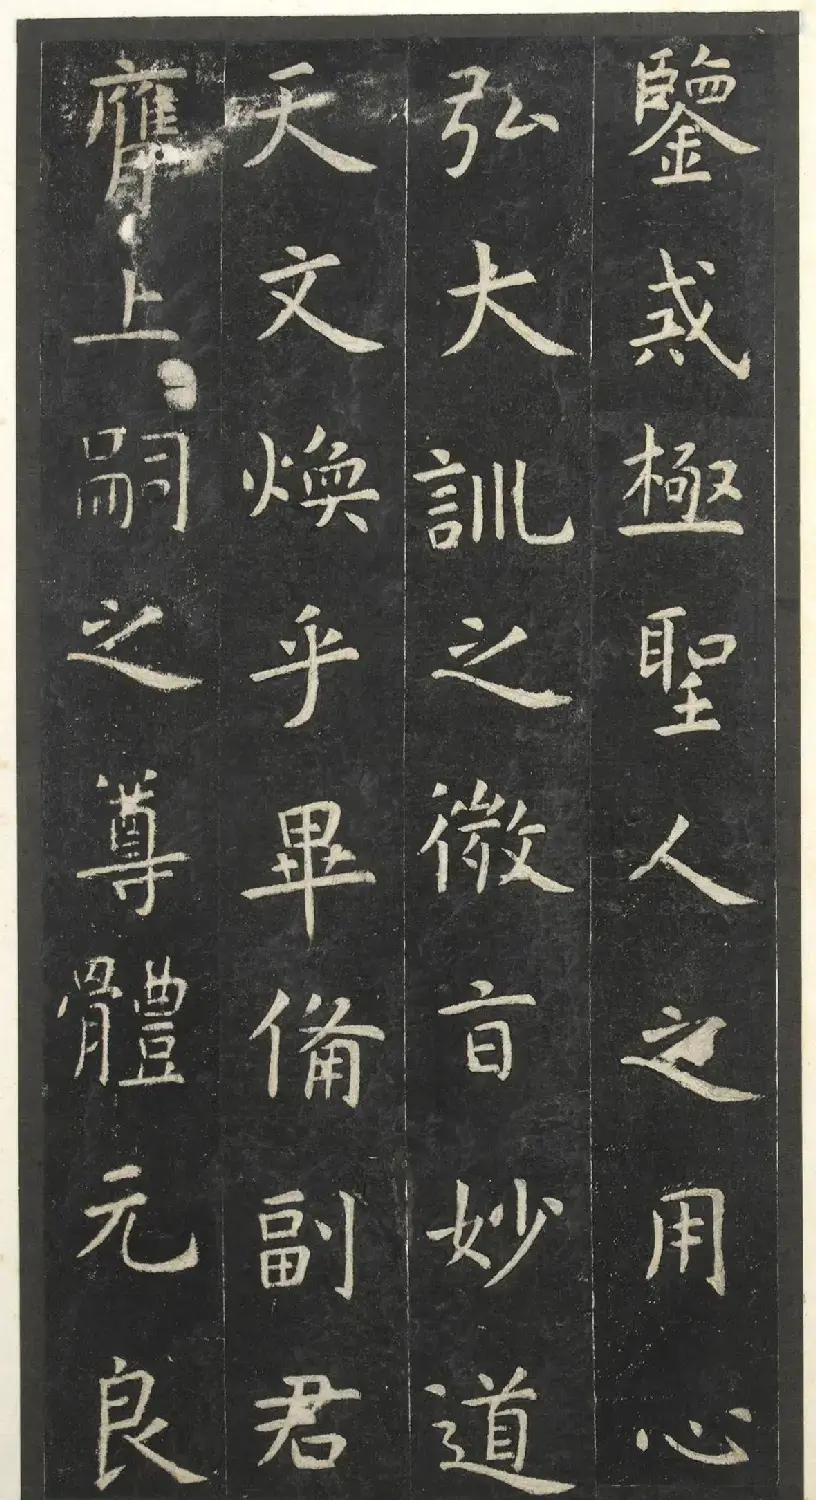 鑒惑極聖人之用心
弘大訓之微旨妙道
天文煥乎畢備副君
膺上嗣之尊體元良